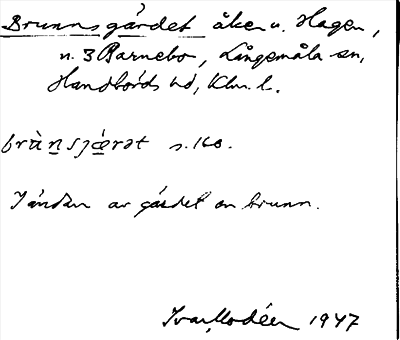 Brunnsgärdet åker u. Hagen,
n. 3 Barnebo, Långemåla sn,
Handbörds hd, Klm. l.
brùnsjæ̀rət s. 160.
I ändan av gärdet en brunn.
Ivar Modéer 1947